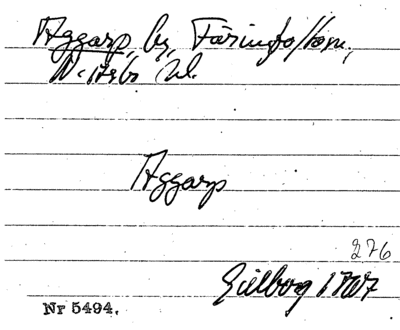 Aggarp, by, Färingtofta sn,
N. Åsbo hd.
Aggarp
276
Gillberg 1767
Nr 5494.